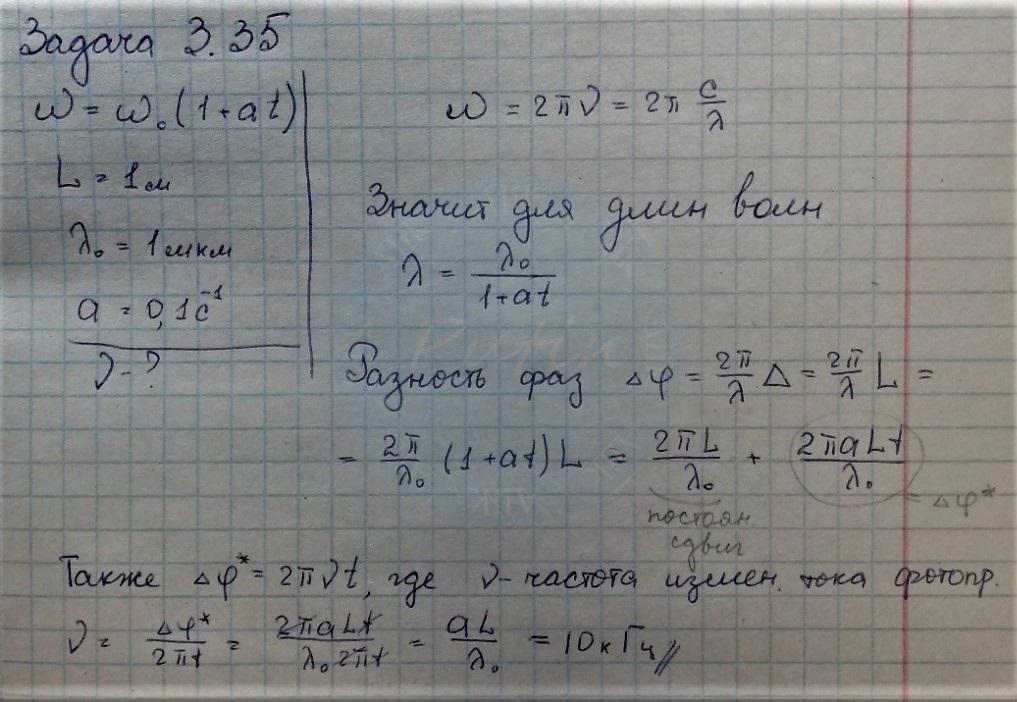 Задача 3.35
ω = ω₀(1+at)
L = 1м
λ₀ = 1мкм
a = 0,1c⁻¹
ν - ?
ω = 2πν = 2π c/λ
Значит для длин волн
λ = λ₀/(1+at)
Разность фаз Δφ = 2π/λ Δ = 2π/λ L =
= 2π/λ₀ (1+at)L = 2πL/λ₀ + 2πaLt/λ₀
постоян
сдвиг
= Δφ*
Также Δφ* = 2πνt, где ν - частота измен. тока фотопр.
ν = Δφ*/2πt = 2πaLt/λ₀2πt = aL/λ₀ = 10кГц //